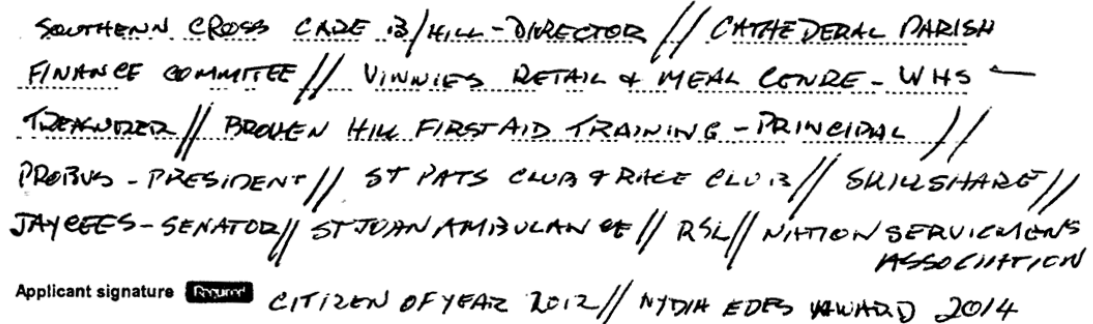 SOUTHENN CROSS CARE B/HILL - DIRECTOR // CATHEDERAL PARISH
FINANCE COMMITEE // VINNIES RETAIL & MEAL CENDRE - WHS -
TREASURER // BROKEN HILL FIRST AID TRAINING - PRINCIPAL //
PROBUS - PRESIDENT // ST PATS CLUB & RACE CLUB // SKILLSHARE //
JAYCEES - SENATOR // ST JOAN AMBULANCE // RSL // NATION SERVICMENS
ASSOCIATION
Applicant signature Required CITIZEN OF YEAR 2012 // NYDIA EDES AWARD 2014